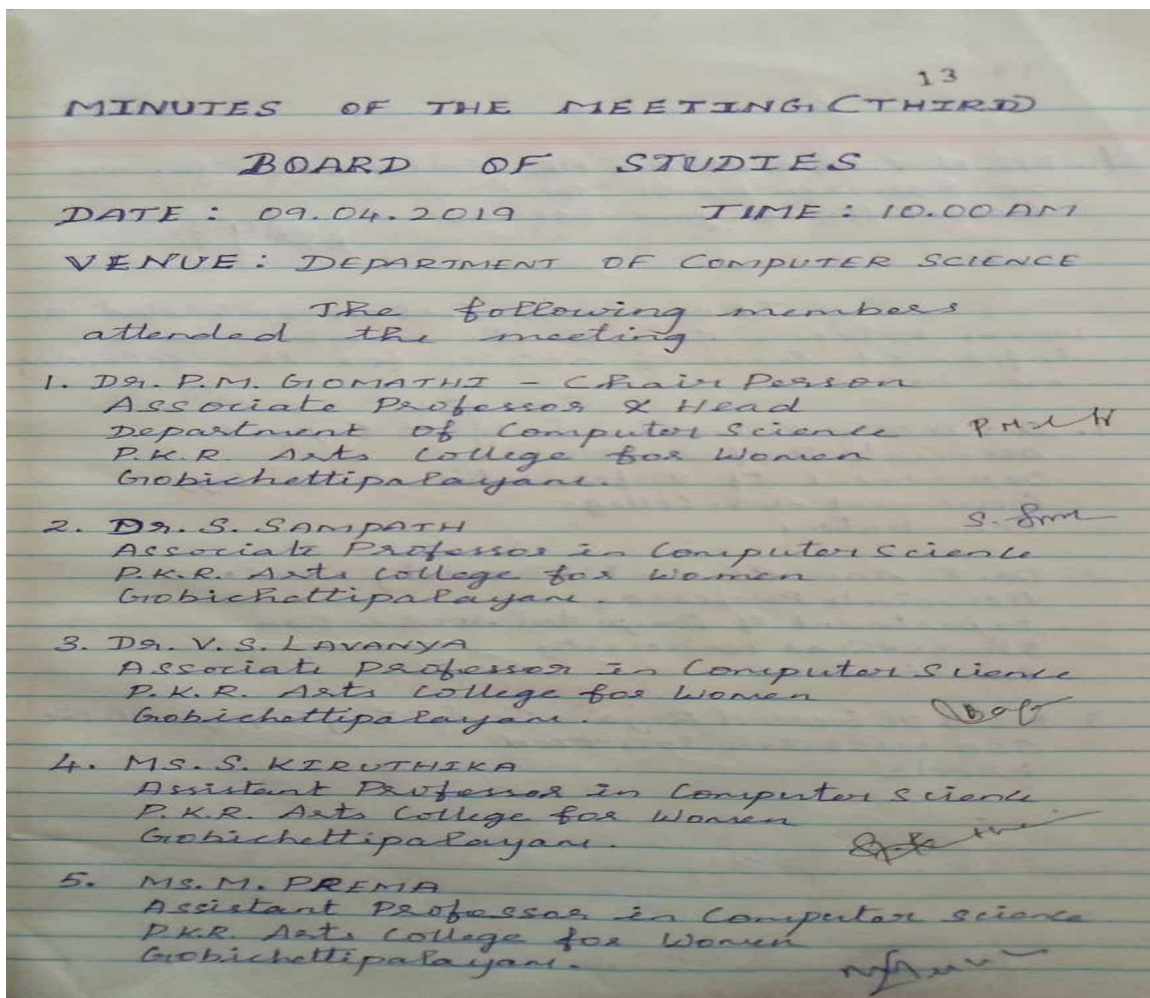 13
MINUTES OF THE MEETING (THIRD)
BOARD OF STUDIES
DATE : 09.04.2019 TIME : 10.00 AM
VENUE : DEPARTMENT OF COMPUTER SCIENCE
The following members
attended the meeting.
1. Dr. P.M. GOMATHI - Chair Person
Associate Professor & Head
Department of Computer Science
P.K.R. Arts College for Women
Gobichettipalayam.
2. Dr. S. SAMPATH
Associate Professor in Computer Science
P.K.R. Arts College for Women
Gobichettipalayam.
3. Dr. V. S. LAVANYA
Associate Professor in Computer Science
P.K.R. Arts College for Women
Gobichettipalayam.
4. MS. S. KIRUTHIKA
Assistant Professor in Computer Science
P.K.R. Arts College for Women
Gobichettipalayam.
5. MS. M. PREMA
Assistant Professor in Computer Science
P.K.R. Arts College for Women
Gobichettipalayam.